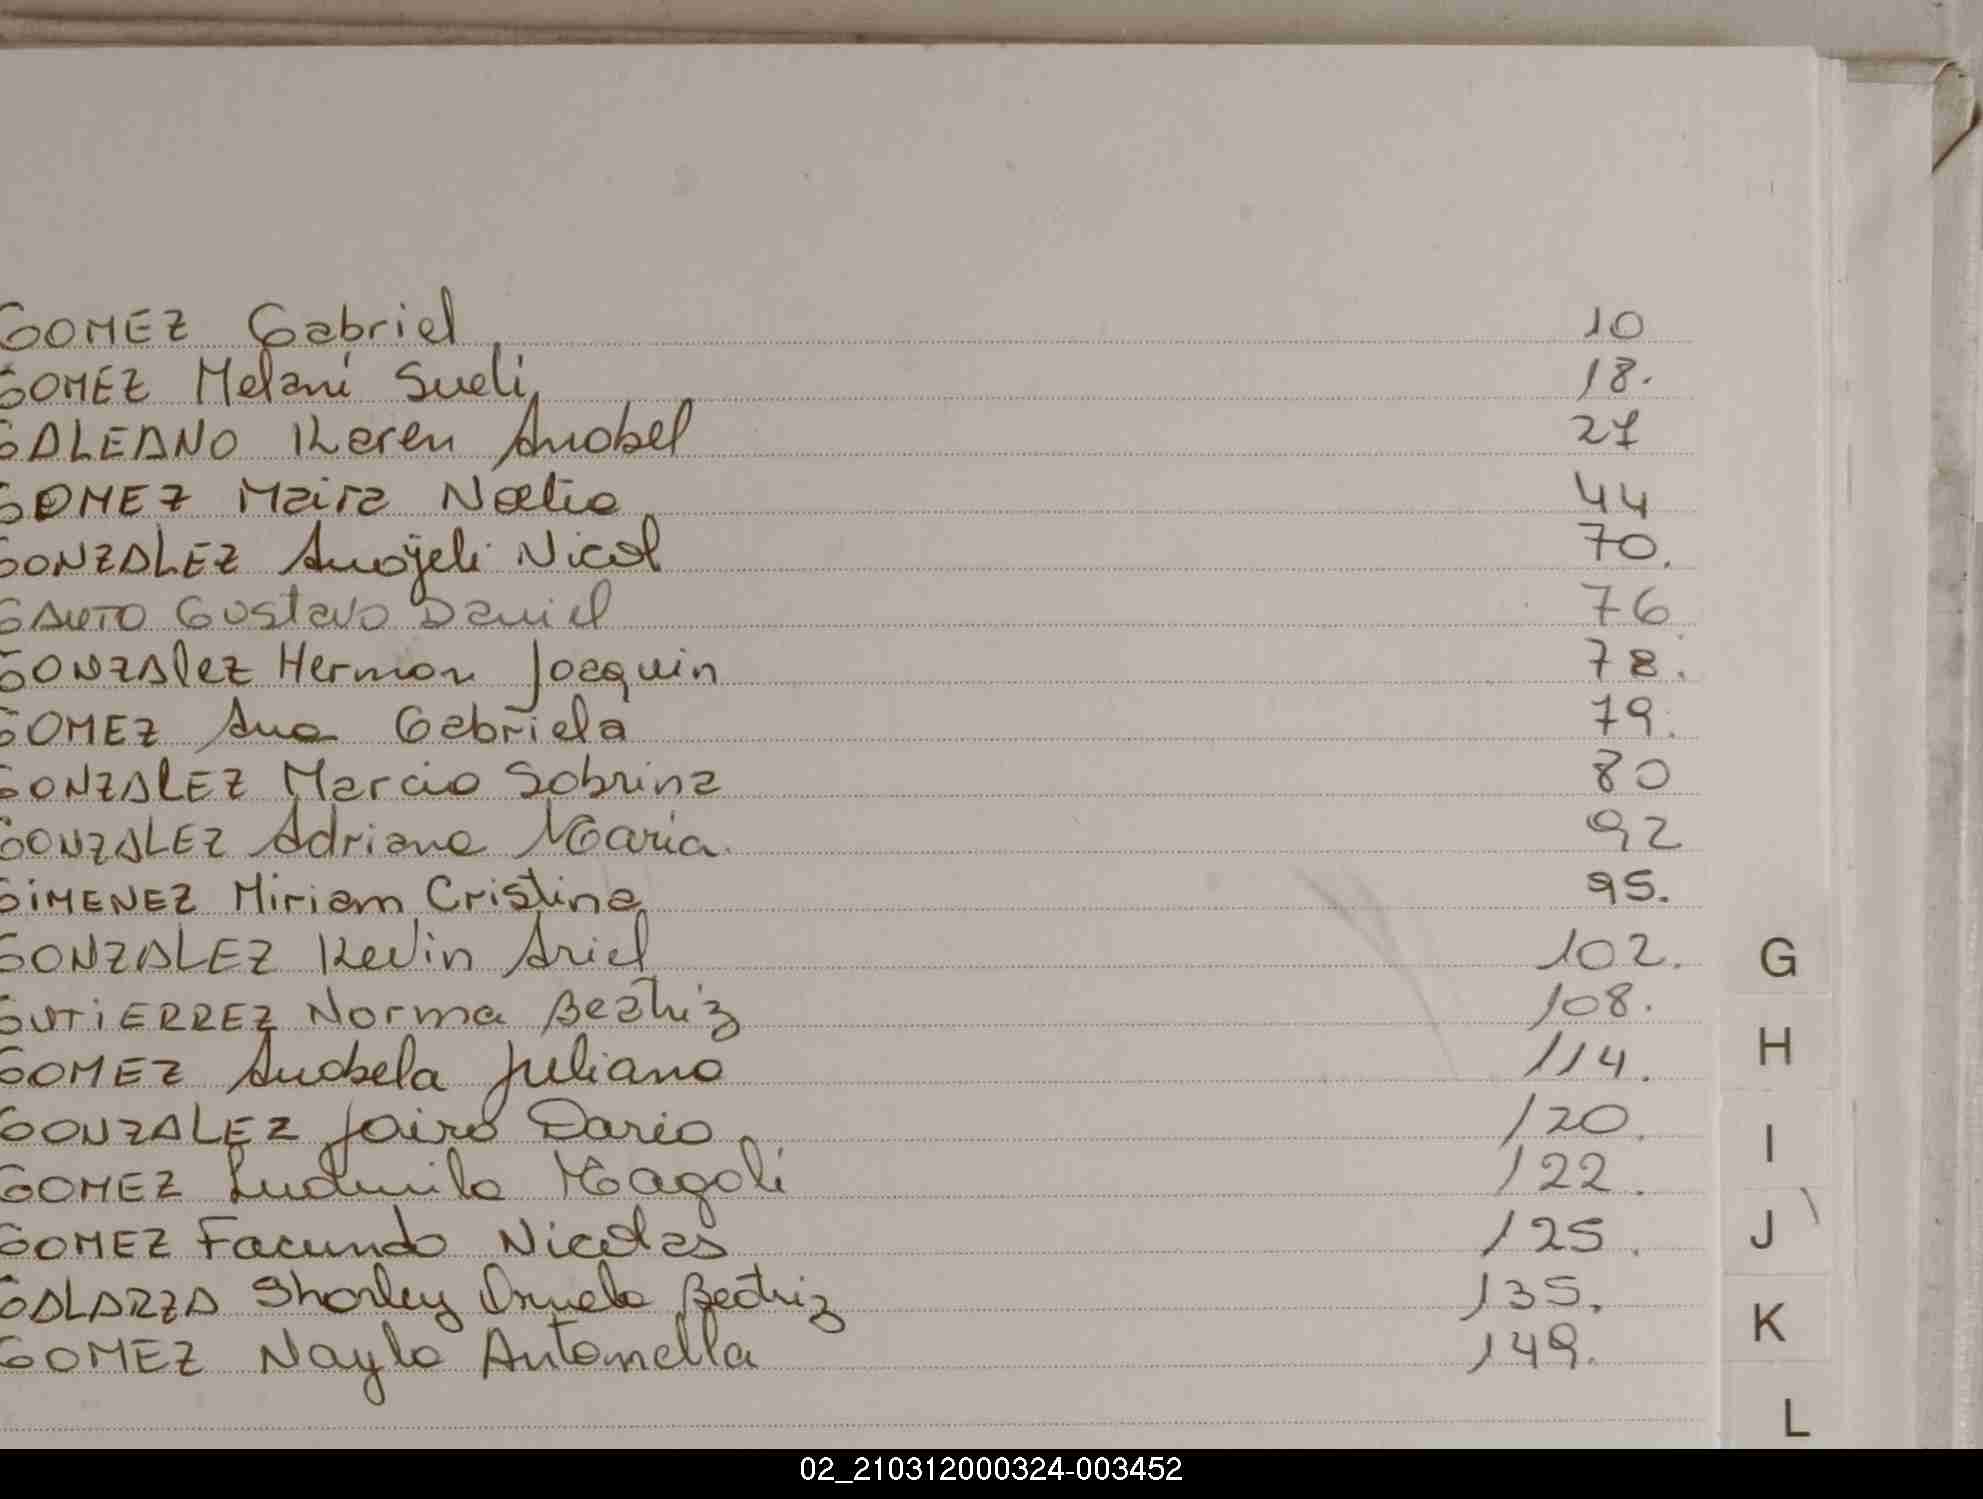 GOMEZ Gabriel 10
GOMEZ Melani Sueli 18.
GALEANO Karen Anabel 27
GOMEZ Maira Noelia 44
GONZALEZ Anayeli Nicol 70.
GAUTO Gustavo Daniel 76
GONZAlEZ Hernan Joaquin 78.
GOMEZ Ana Gabriela 79.
GONZALEZ Marcia Sabrina 80
GONZALEZ Adriana Maria. 92
GIMENEZ Miriam Cristina 95.
GONZALEZ Kevin Ariel 102.
GUTIERREZ Norma Beatriz 108.
GOMEZ Anabela Juliana 114.
GONZALEZ Jairo Dario 120.
GOMEZ Ludmila Magali 122.
GOMEZ Facundo Nicolas 125.
GALARZA Sharley Beatriz 135.
GOMEZ Nayla Antonella 149.
G
H
I
J
K
L
02_210312000324-003452